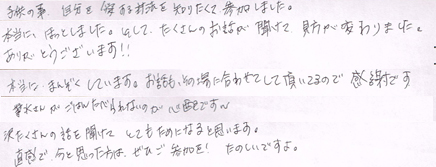 子供の事、自分を守る対話を知りたくて参加しました。
本当に、ほっとしました。そして、たくさんのお話が聞けて見方が変わりました。
ありがとうございます!!
本当に、まんぞくしています。お話も、その場に合わせてして頂いてるので感謝です
さんがごはんたべられないのが心配です〜
沢たくさんの話を聞けてとてもためになると思います。
直感で、今と思った方は、ぜひご参加を! たのしいですよ。